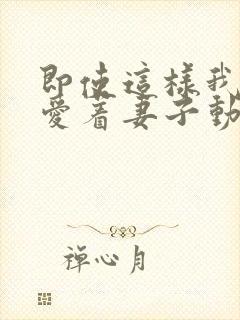 即使這樣我
愛着妻子動
禪心月